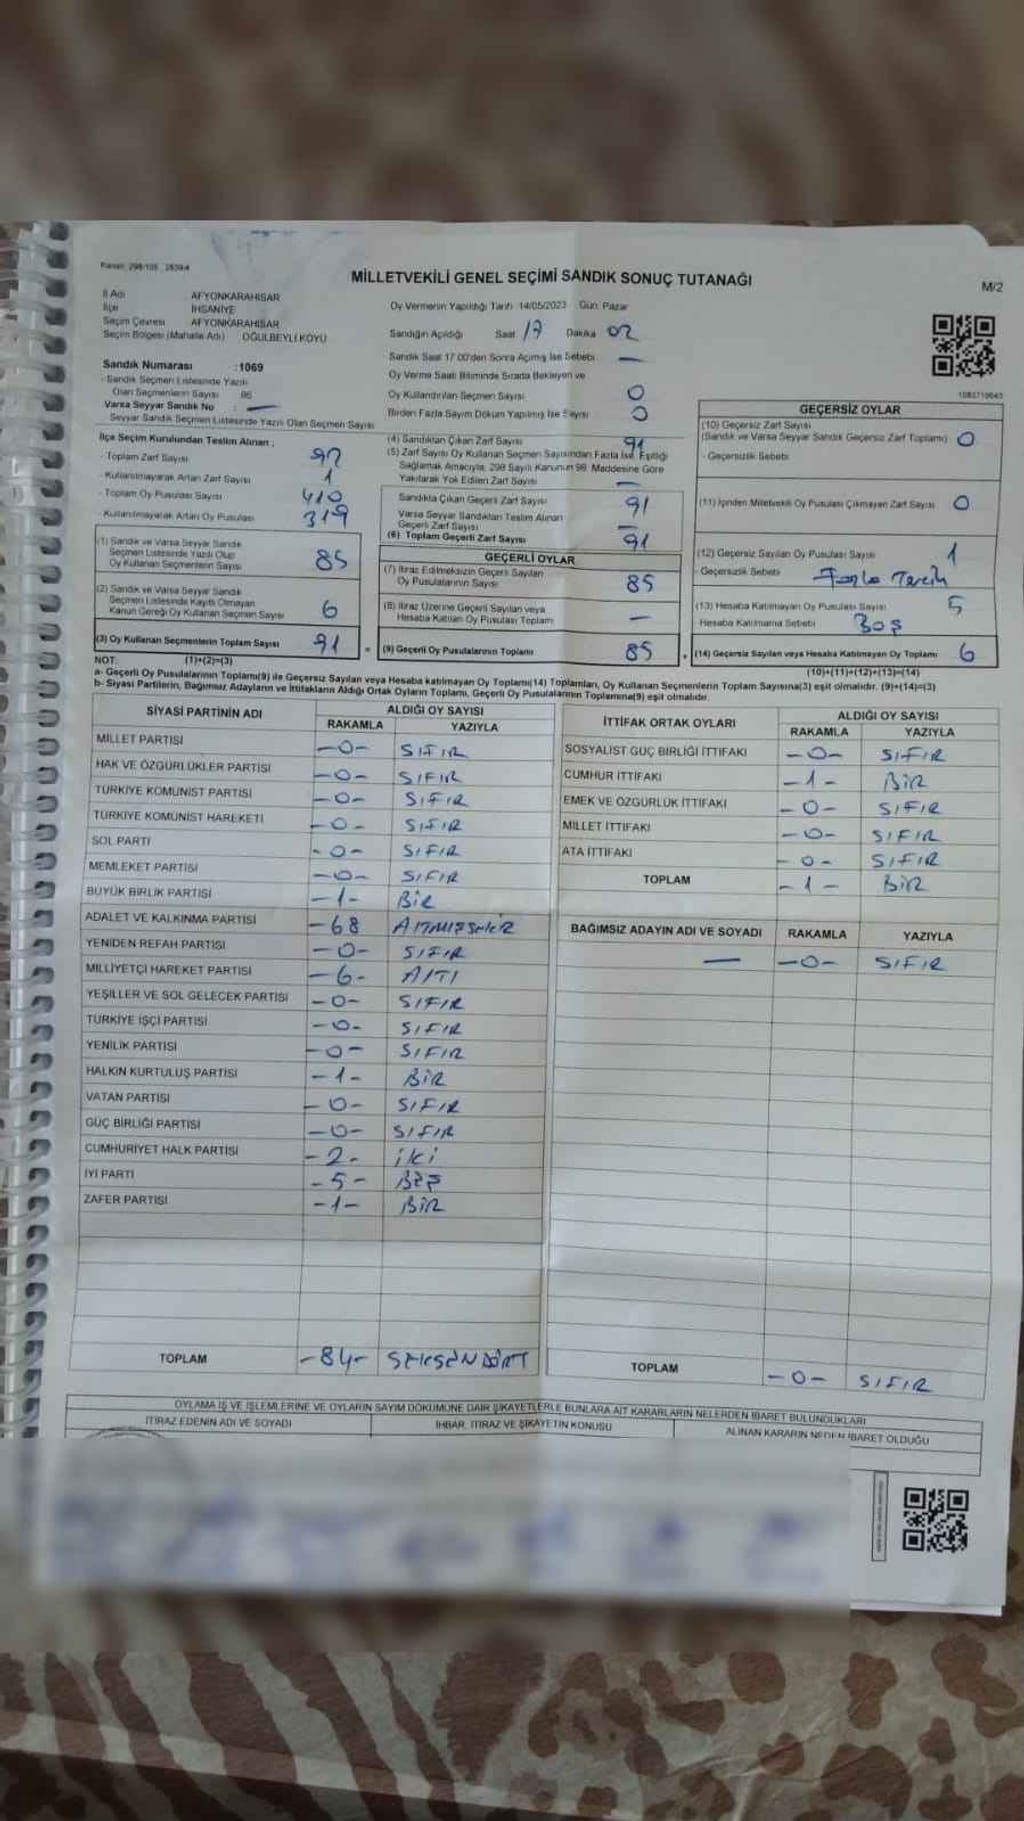 Kanun: 298/105 2839/4
MİLLETVEKİLİ GENEL SEÇİMİ SANDIK SONUÇ TUTANAĞI
M/2
İl Adı : AFYONKARAHİSAR
İlçe : İHSANİYE
Seçim Çevresi : AFYONKARAHİSAR
Seçim Bölgesi (Mahalle Adı) OĞULBEYLİ KÖYÜ
Sandık Numarası :1069
- Sandık Seçmen Listesinde Yazılı
Olan Seçmenlerin Sayısı 86
Varsa Seyyar Sandık No : —
Seyyar Sandık Seçmen Listesinde Yazılı Olan Seçmen Sayısı
Oy Vermenin Yapıldığı Tarih 14/05/2023 Gün: Pazar
Sandığın Açıldığı Saat 17 Dakika 02
Sandık Saat 17.00'den Sonra Açılmış İse Sebebi —
Oy Verme Saati Bitiminde Sırada Bekleyen ve
Oy Kullandırılan Seçmen Sayısı 0
Birden Fazla Sayım Döküm Yapılmış İse Sayısı 0
İlçe Seçim Kurulundan Teslim Alınan ;
- Toplam Zarf Sayısı 92
- Kullanılmayarak Artan Zarf Sayısı 1
- Toplam Oy Pusulası Sayısı 410
- Kullanılmayarak Artan Oy Pusulası 319
(1) Sandık ve Varsa Seyyar Sandık
Seçmen Listesinde Yazılı Olup
Oy Kullanan Seçmenlerin Sayısı 85
(2) Sandık ve Varsa Seyyar Sandık
Seçmen Listesinde Kayıtlı Olmayan
Kanun Gereği Oy Kullanan Seçmen Sayısı 6
(3) Oy Kullanan Seçmenlerin Toplam Sayısı 91
(4) Sandıktan Çıkan Zarf Sayısı 91
(5) Zarf Sayısı Oy Kullanan Seçmen Sayısından Fazla İse, Eşitliği
Sağlamak Amacıyla, 298 Sayılı Kanunun 98. Maddesine Göre
Yakılarak Yok Edilen Zarf Sayısı —
Sandıkta Çıkan Geçerli Zarf Sayısı 91
Varsa Seyyar Sandıktan Teslim Alınan
Geçerli Zarf Sayısı —
(6) Toplam Geçerli Zarf Sayısı 91
GEÇERLİ OYLAR
(7) İtiraz Edilmeksizin Geçerli Sayılan
Oy Pusulalarının Sayısı 85
(8) İtiraz Üzerine Geçerli Sayılan veya
Hesaba Katılan Oy Pusulası Toplamı —
= (9) Geçerli Oy Pusulalarının Toplamı 85
1083719643
GEÇERSİZ OYLAR
(10) Geçersiz Zarf Sayısı
(Sandık ve Varsa Seyyar Sandık Geçersiz Zarf Toplamı) 0
- Geçersizlik Sebebi
(11) İçinden Milletvekili Oy Pusulası Çıkmayan Zarf Sayısı 0
(12) Geçersiz Sayılan Oy Pusulası Sayısı 1
- Geçersizlik Sebebi Fazla Tercih
(13) Hesaba Katılmayan Oy Pusulası Sayısı 5
Hesaba Katılmama Sebebi Boş
+ (14) Geçersiz Sayılan veya Hesaba Katılmayan Oy Toplamı 6
NOT: (1)+(2)=(3)
(10)+(11)+(12)+(13)=(14)
a- Geçerli Oy Pusulalarının Toplamı(9) ile Geçersiz Sayılan veya Hesaba katılmayan Oy Toplamı(14) Toplamları, Oy Kullanan Seçmenlerin Toplam Sayısına(3) eşit olmalıdır. (9)+(14)=(3)
b- Siyasi Partilerin, Bağımsız Adayların ve İttifakların Aldığı Ortak Oyların Toplamı, Geçerli Oy Pusulalarının Toplamına(9) eşit olmalıdır.
SİYASİ PARTİNİN ADI ALDIĞI OY SAYISI
RAKAMLA YAZIYLA
MİLLET PARTİSİ -0- SIFIR
HAK VE ÖZGÜRLÜKLER PARTİSİ -0- SIFIR
TÜRKİYE KOMÜNİST PARTİSİ -0- SIFIR
TÜRKİYE KOMÜNİST HAREKETİ -0- SIFIR
SOL PARTİ -0- SIFIR
MEMLEKET PARTİSİ -0- SIFIR
BÜYÜK BİRLİK PARTİSİ -1- BİR
ADALET VE KALKINMA PARTİSİ -68 AlTMIŞSeKİZ
YENİDEN REFAH PARTİSİ -0- SIFIR
MİLLİYETÇİ HAREKET PARTİSİ -6- AlTI
YEŞİLLER VE SOL GELECEK PARTİSİ -0- SIFIR
TÜRKİYE İŞÇİ PARTİSİ -0- SIFIR
YENİLİK PARTİSİ -0- SIFIR
HALKIN KURTULUŞ PARTİSİ -1- BİR
VATAN PARTİSİ -0- SIFIR
GÜÇ BİRLİĞİ PARTİSİ -0- SIFIR
CUMHURİYET HALK PARTİSİ -2- İKİ
İYİ PARTİ -5- BEŞ
ZAFER PARTİSİ -1- BİR
TOPLAM -84- SEKSENDÖRT
İTTİFAK ORTAK OYLARI ALDIĞI OY SAYISI
RAKAMLA YAZIYLA
SOSYALİST GÜÇ BİRLİĞİ İTTİFAKI -0- SIFIR
CUMHUR İTTİFAKI -1- BİR
EMEK VE ÖZGÜRLÜK İTTİFAKI -0- SIFIR
MİLLET İTTİFAKI -0- SIFIR
ATA İTTİFAKI -0- SIFIR
TOPLAM -1- BİR
BAĞIMSIZ ADAYIN ADI VE SOYADI RAKAMLA YAZIYLA
— -0- SIFIR
TOPLAM -0- SIFIR
OYLAMA İŞ VE İŞLEMLERİNE VE OYLARIN SAYIM DÖKÜMÜNE DAİR ŞİKAYETLERLE BUNLARA AİT KARARLARIN NELERDEN İBARET BULUNDUKLARI
İTİRAZ EDENİN ADI VE SOYADI İHBAR, İTİRAZ VE ŞİKAYETİN KONUSU ALINAN KARARIN NEDEN İBARET OLDUĞU